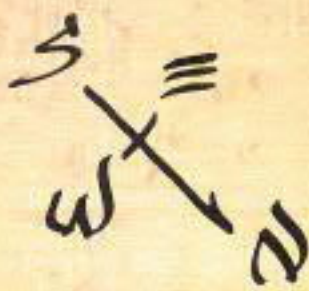 S
E
W
N